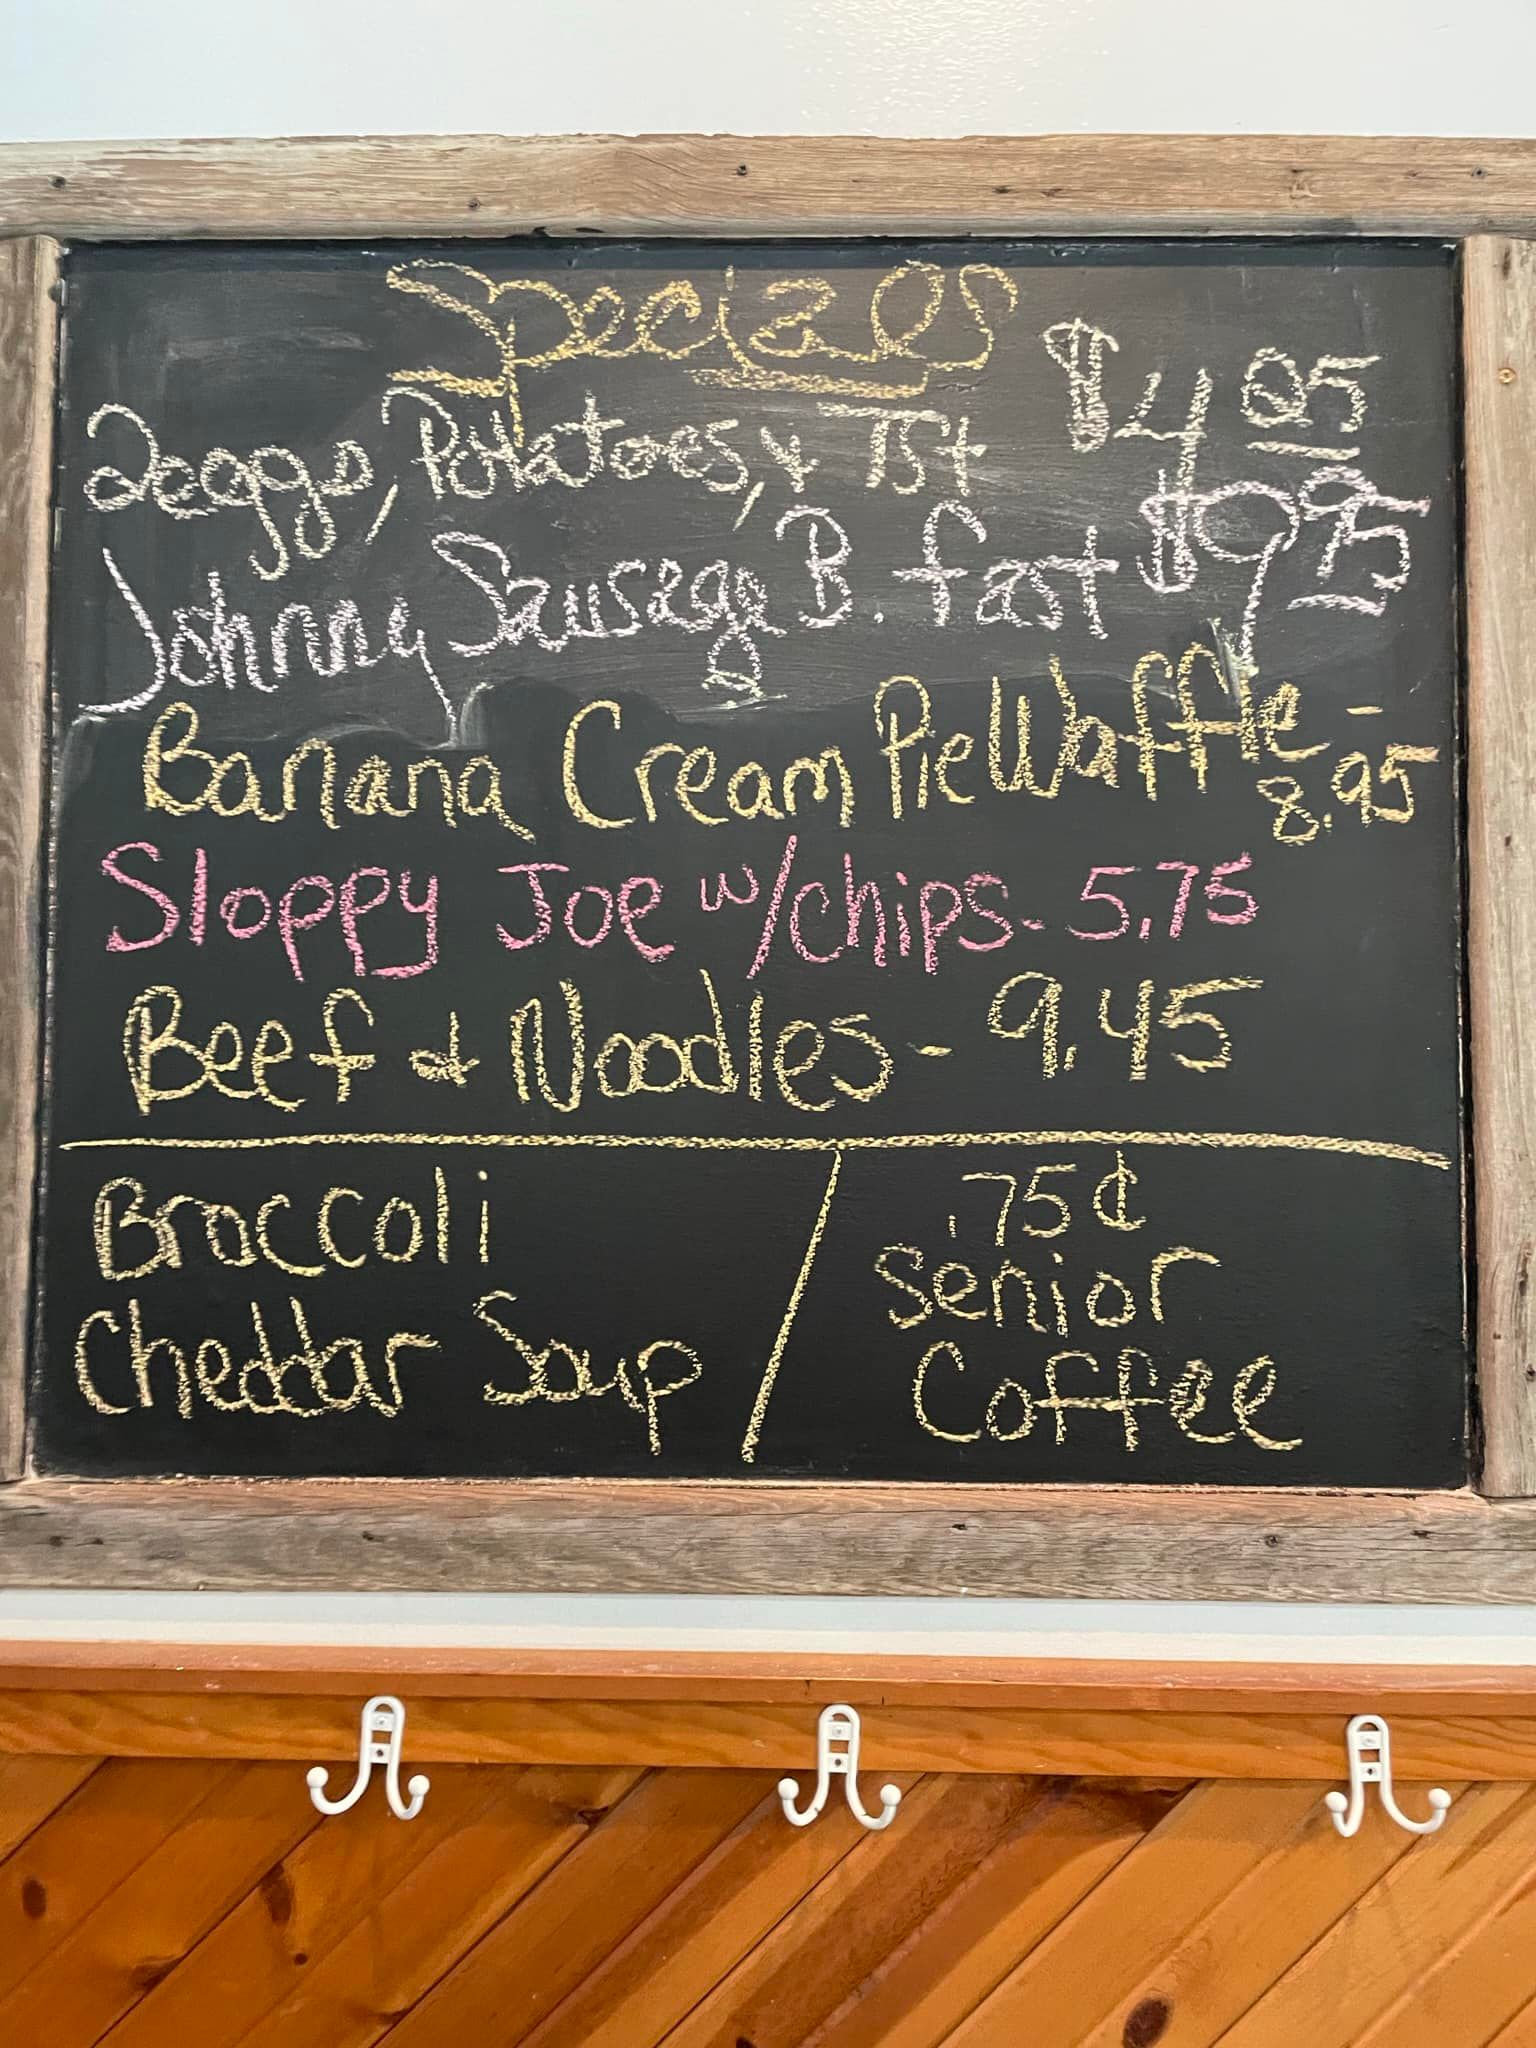 Specials
2 eggs, Potatoes, & Tst $4 95
Johnny Sausage B. fast $9 95
Banana Cream Pie Waffle -
8.95
Sloppy Joe w/chips - 5.75
Beef & Noodles - 9.45
Broccoli
Cheddar Soup
.75¢
Senior
Coffee